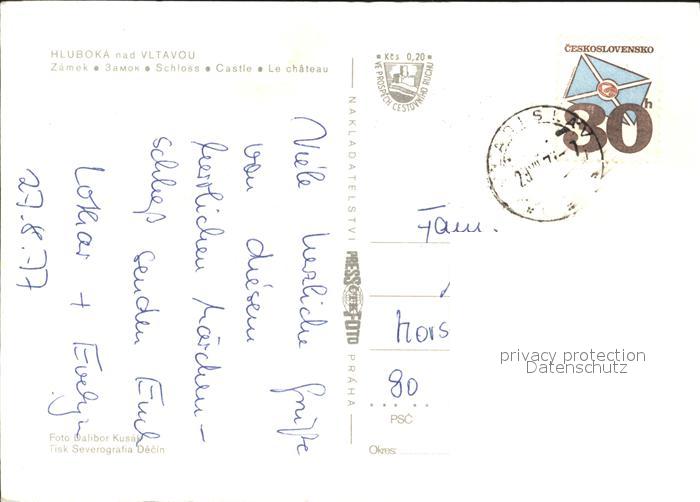 HLUBOKÁ nad VLTAVOU
Zámek • Замок • Schloss • Castle • Le château
Kčs 0,20
VE PROSPĚCH CESTOVNÍHO RUCHU
ČESKOSLOVENSKO
30h
Viele herzliche Grüße
von diesem
herrlichen Märchen-
schloß senden Euch
Lothar + Evelyn
27.8.77
NAKLADATELSTVÍ
PRESSFOTO
PRAHA
Fam.
Hors
80
PSČ
Okres:
privacy protection
Datenschutz
Foto Dalibor Kusák
Tisk Severografia Děčín